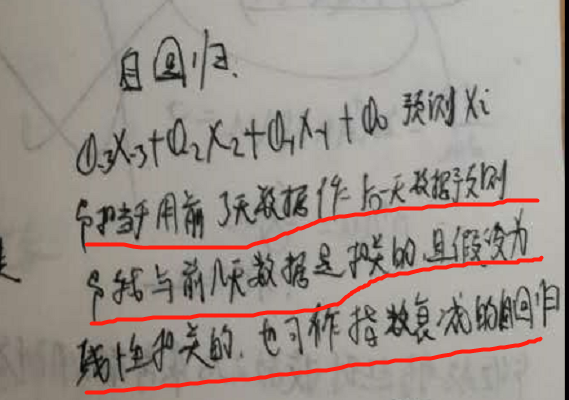 自回归.
a-3X-3+a-2X-2+a-1X-1+a0 预测Xi
相当于用前3天数据作后一天数据预测
与前几天数据是相关的 且假设为
线性相关的. 也可称指数衰减的自回归